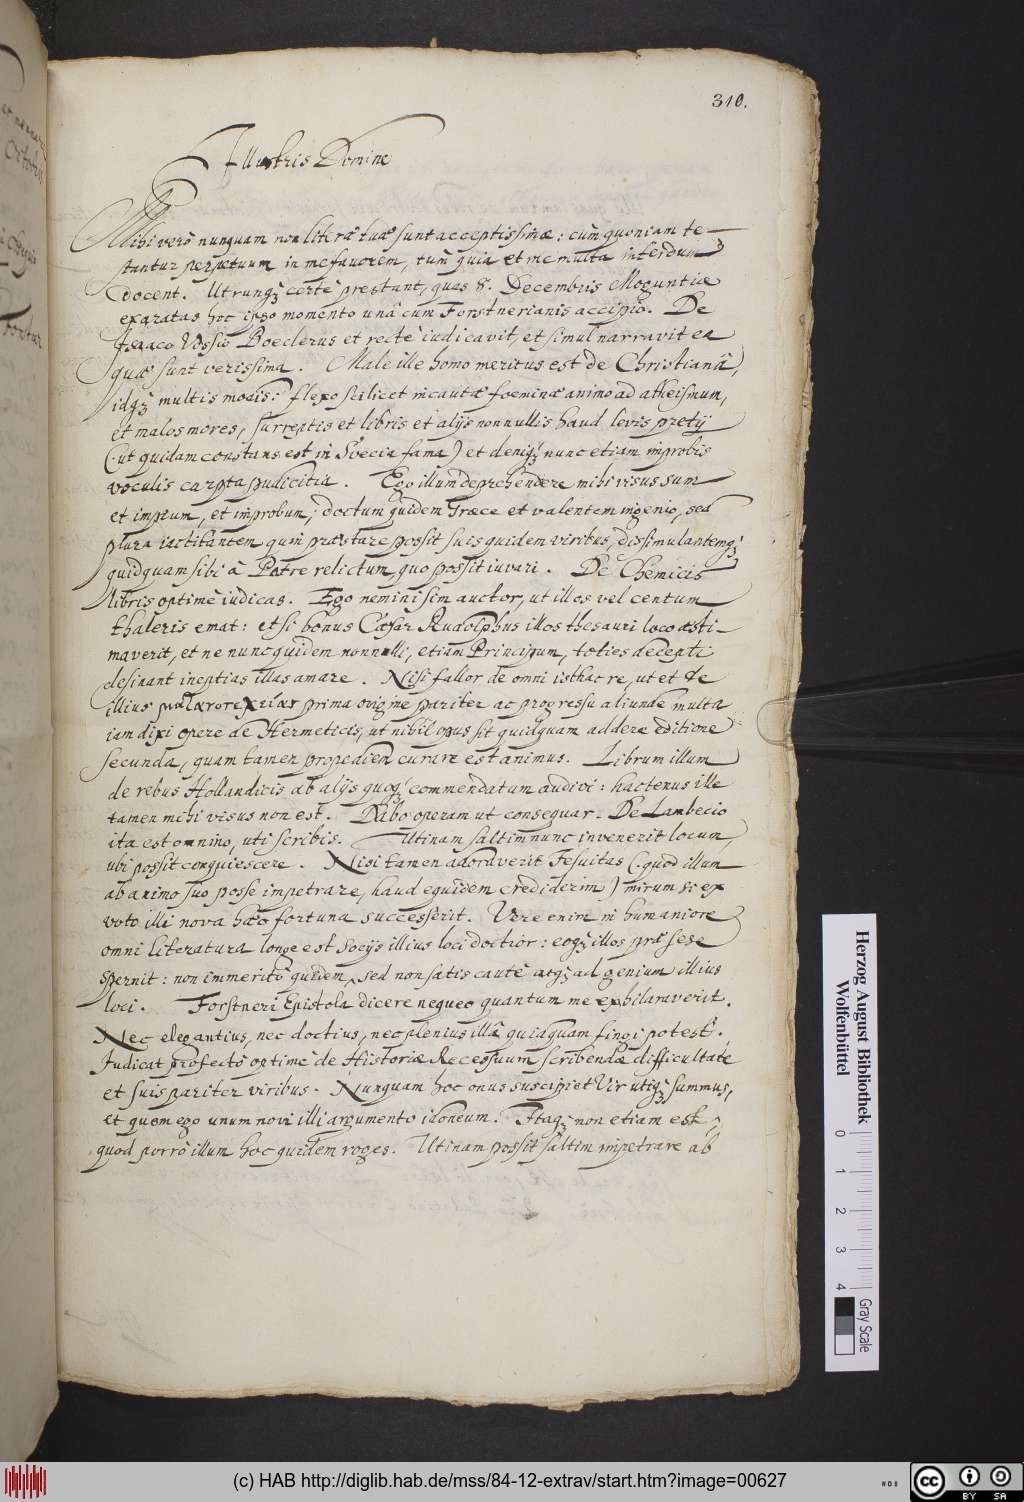 310.
Illustris Domine
Mihi verò nunquam non literæ tuæ sunt acceptissimæ: cùm quoniam te-
stantur perpetuum in me favorem, tùm quia et me multa interdum
docent. Utrunq; certè prestant, quas 8. Decembris Moguntiæ
exaratas hoc ipso momento unâ cum Forstnerianis accipio. De
Isaaco Vossio Boeclerus et rectè iudicavit, et simul narravit ea
quæ sunt verissima. Malè ille homo meritus est de Christianâ,
idq; multis modis: flexo scilicet incautæ foeminæ animo ad atheismum,
et malos mores, surreptis et libris et alijs nonnullis haud levis pretij
(ut quidam constans est in Svecia fama) et deniq; nunc etiam improbis
voculis carpta pudicitia. Ego illum deprehendere mihi visus sum
et impium, et improbum; doctum quidem Græce et valentem ingenio, sed
plura iactitantem quàm præstare possit suis quidem viribus, dissimulantemq;
quidquam sibi à Patre relictum, quo possit iuvari. De Chemicis
libris optimè iudicas. Ego nemini sim auctor, ut illos vel centum
thaleris emat: etsi bonus Cæsar Rudolphus illos thesauri loco æsti-
maverit, et ne nunc quidem nonnulli, etiam Principum, toties decepti
desinant ineptias illas amare. Nisi fallor de omni isthac re, ut et de
illius ματαιοτεχνίας prima origine pariter ac progressu aliunde multa
iam dixi opere de Hermeticis, ut nihil opus sit quidquam addere editione
secunda, quam tamen propediem curare est animus. Librum illum
de rebus Hollandicis ab alijs quoq; commendatum audivi: hactenus ille
tamen mihi visus non est. Dabo operam ut consequar. De Lambecio
ita est omnino, uti scribis. Utinam saltim nunc invenerit locum,
ubi possit conquiescere. Nisi tamen adoraverit Jesuitas (quod illum
ab animo suo posse impetrare, haud equidem crediderim) mirum si ex
voto illi nova hæc fortuna successerit. Vere enim in humaniore
omni literatura longe est Socijs illius loci doctior: eoq; illos præ sese
spernit: non immeritò quidem, sed non satis cautè atq; ad genium illius
loci. Forstneri Epistola dicere nequeo quantum me exhilaraverit.
Nec elegantius, nec doctius, nec plenius illâ quidquam fingi potest.
Iudicat profectò optimè de Historiæ Recessuum scribendæ difficultate
et suis pariter viribus. Nunquam hoc onus suscipiet Vir utiq; summus,
et quem ego unum novi illi argumento idoneum. Itaq; non etiam est,
quod porrò illum hoc quidem roges. Utinam possit saltim impetrare ab
Herzog August Bibliothek
Wolfenbüttel
0 1 2 3 4
Gray Scale
(c) HAB http://diglib.hab.de/mss/84-12-extrav/start.htm?image=00627
cc BY SA